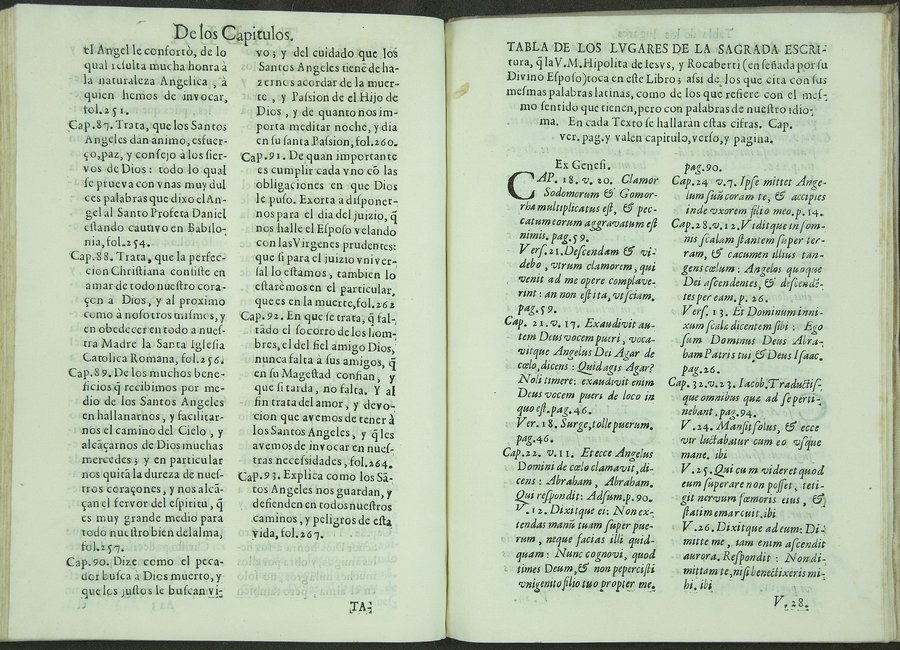 De los Capitulos.
el Angel le confortò, de lo
qual resulta mucha honra à
la naturaleza Angelica, à
quien hemos de invocar,
fol.251.
Cap.87. Trata, que los Santos
Angeles dan animo, esfuer-
ço, paz, y consejo à los sier-
vos de Dios: todo lo qual
se prueva con vnas muy dul
ces palabras que dixo el An-
gel al Santo Profeta Daniel
estando cautivo en Babilo-
nia, fol.254.
Cap.88. Trata, que la perfec-
cion Christiana consiste en
amar de todo nuestro cora-
çon à Dios, y al proximo
como à nosotros mismos, y
en obedecer en todo a nues-
tra Madre la Santa Iglesia
Catolica Romana, fol.256.
Cap.89. De los muchos bene-
ficios q̃ recibimos por me-
dio de los Santos Angeles
en hallanarnos, y facilitar-
nos el camino del Cielo, y
alcãçarnos de Dios muchas
mercedes; y en particular
nos quitã la dureza de nues-
tros coraçones, y nos alcã-
çan el fervor del espiritu, q̃
es muy grande medio para
todo nuestro bien del alma,
fol.257.
Cap.90. Dize como el peca-
dor busca à Dios muerto, y
que los justos le buscan vi-
vo; y del cuidado que los
Santos Angeles tienē de ha-
zernos acordar de la muer-
te, y Passion de el Hijo de
Dios, y de quanto nos im-
porta meditar noche, y dia
en su santa Passion, fol.260.
Cap.91. De quan importante
es cumplir cada vno cō las
obligaciones en que Dios
le puso. Exorta a disponer-
nos para el dia del juizio, q̃
nos halle el Esposo velando
con las Virgenes prudentes:
que si para el juizio vniver-
sal lo estamos, tambien lo
estaremos en el particular,
que es en la muerte, fol.262
Cap.92. En que se trata, q̃ fal-
tado el socorro de los hom-
bres, el del fiel amigo Dios,
nunca falta à sus amigos, q̃
en su Magestad confian, y
que si tarda, no falta. Y al
fin trata del amor, y devo-
cion que avemos de tener à
los Santos Angeles, y q̃ les
avemos de invocar en nues-
tras necessidades, fol.264.
Cap.93. Explica como los Sã-
tos Angeles nos guardan, y
defienden en todos nuestros
caminos, y peligros de esta
vida, fol.267.
TA-
TABLA DE LOS LVGARES DE LA SAGRADA ESCRI-
tura, q̃ la V.M. Hipolita de Iesvs, y Rocaberti (enseñada por su
Divino Esposo) toca en este Libro; assi de los que cita con sus
mesmas palabras latinas, como de los que refiere con el mes-
mo sentido que tienen, pero con palabras de nuestro idio-
ma. En cada Texto se hallaràn estas cifras. Cap.
ver. pag. y valen capitulo, verso, y pagina.
Ex Genesi.
CAP. 18. v. 20. Clamor
Sodomorum & Gomor-
rha multiplicatus est, & pec-
catum eorum aggravatum est
nimis. pag.59.
Vers.21. Descendam & vi-
debo, vtrum clamorem, qui
venit ad me opere complave-
rint: an non est ita, vt sciam.
pag.59.
Cap. 21. v. 17. Exaudivit au-
tem Deus vocem pueri, voca-
vitque Angelus Dei Agar de
cœlo, dicens: Quid agis Agar?
Noli timere: exaudivit enim
Deus vocem pueri de loco in
quo est. pag.46.
Ver.18. Surge, tolle puerum.
pag.46.
Cap.22. v.11. Et ecce Angelus
Domini de cœlo clamavit, di-
cens: Abraham, Abraham.
Qui respondit: Adsum. p.90.
V.12. Dixitque ei: Non ex-
tendas manũ tuam super pue-
rum, neque facias illi quid-
quam: Nunc cognovi, quod
times Deum, & non pepercisti
vnigenito filio tuo propter me.
pag.90.
Cap.24 v.7. Ipse mittet Ange-
lum suũ coram te, & accipies
inde vxorem filio meo. p.14.
Cap.28.v.12. Vidit que in som-
nis scalam stantem super ter-
ram, & cacumen illius tan-
gens cœlum: Angelos quoque
Dei ascendentes, & descendē-
tes per eam. p. 26.
Vers. 13. Et Dominum inni-
xum scalæ dicentem sibi: Ego
sum Dominus Deus Abra-
bam Patris tui, & Deus Isaac.
pag.26.
Cap.32.v.23. Iacob. Traductis-
que omnibus quæ ad se perti-
nebant. pag.94.
V.24. Mansit solus, & ecce
vir luctabatur cum eo vsque
mane. ibi
V.25. Qui cum videret quod
eum superare non posset, teti-
git nervum fœmoris eius, &
statim emarcuit. ibi
V.26. Dixitque ad eum: Di-
mitte me, tam enim ascendit
aurora. Respondit: Non di-
mittam te, nisi benedixeris mi-
hi. ibi
V.28.